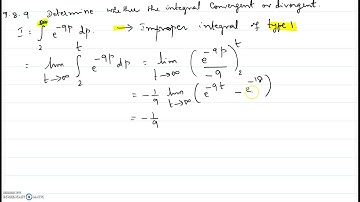 7.8.9 Determine whether the integral Convergent or divergent.
I = ∫₂^∞ e^{-9p} dp. ⟶ Improper integral of type 1
= lim_{t→∞} ∫₂^t e^{-9p} dp = lim_{t→∞} (e^{-9p}/-9)₂^t
= -1/9 lim_{t→∞} (e^{-9t} - e^{-18})
= -1/9